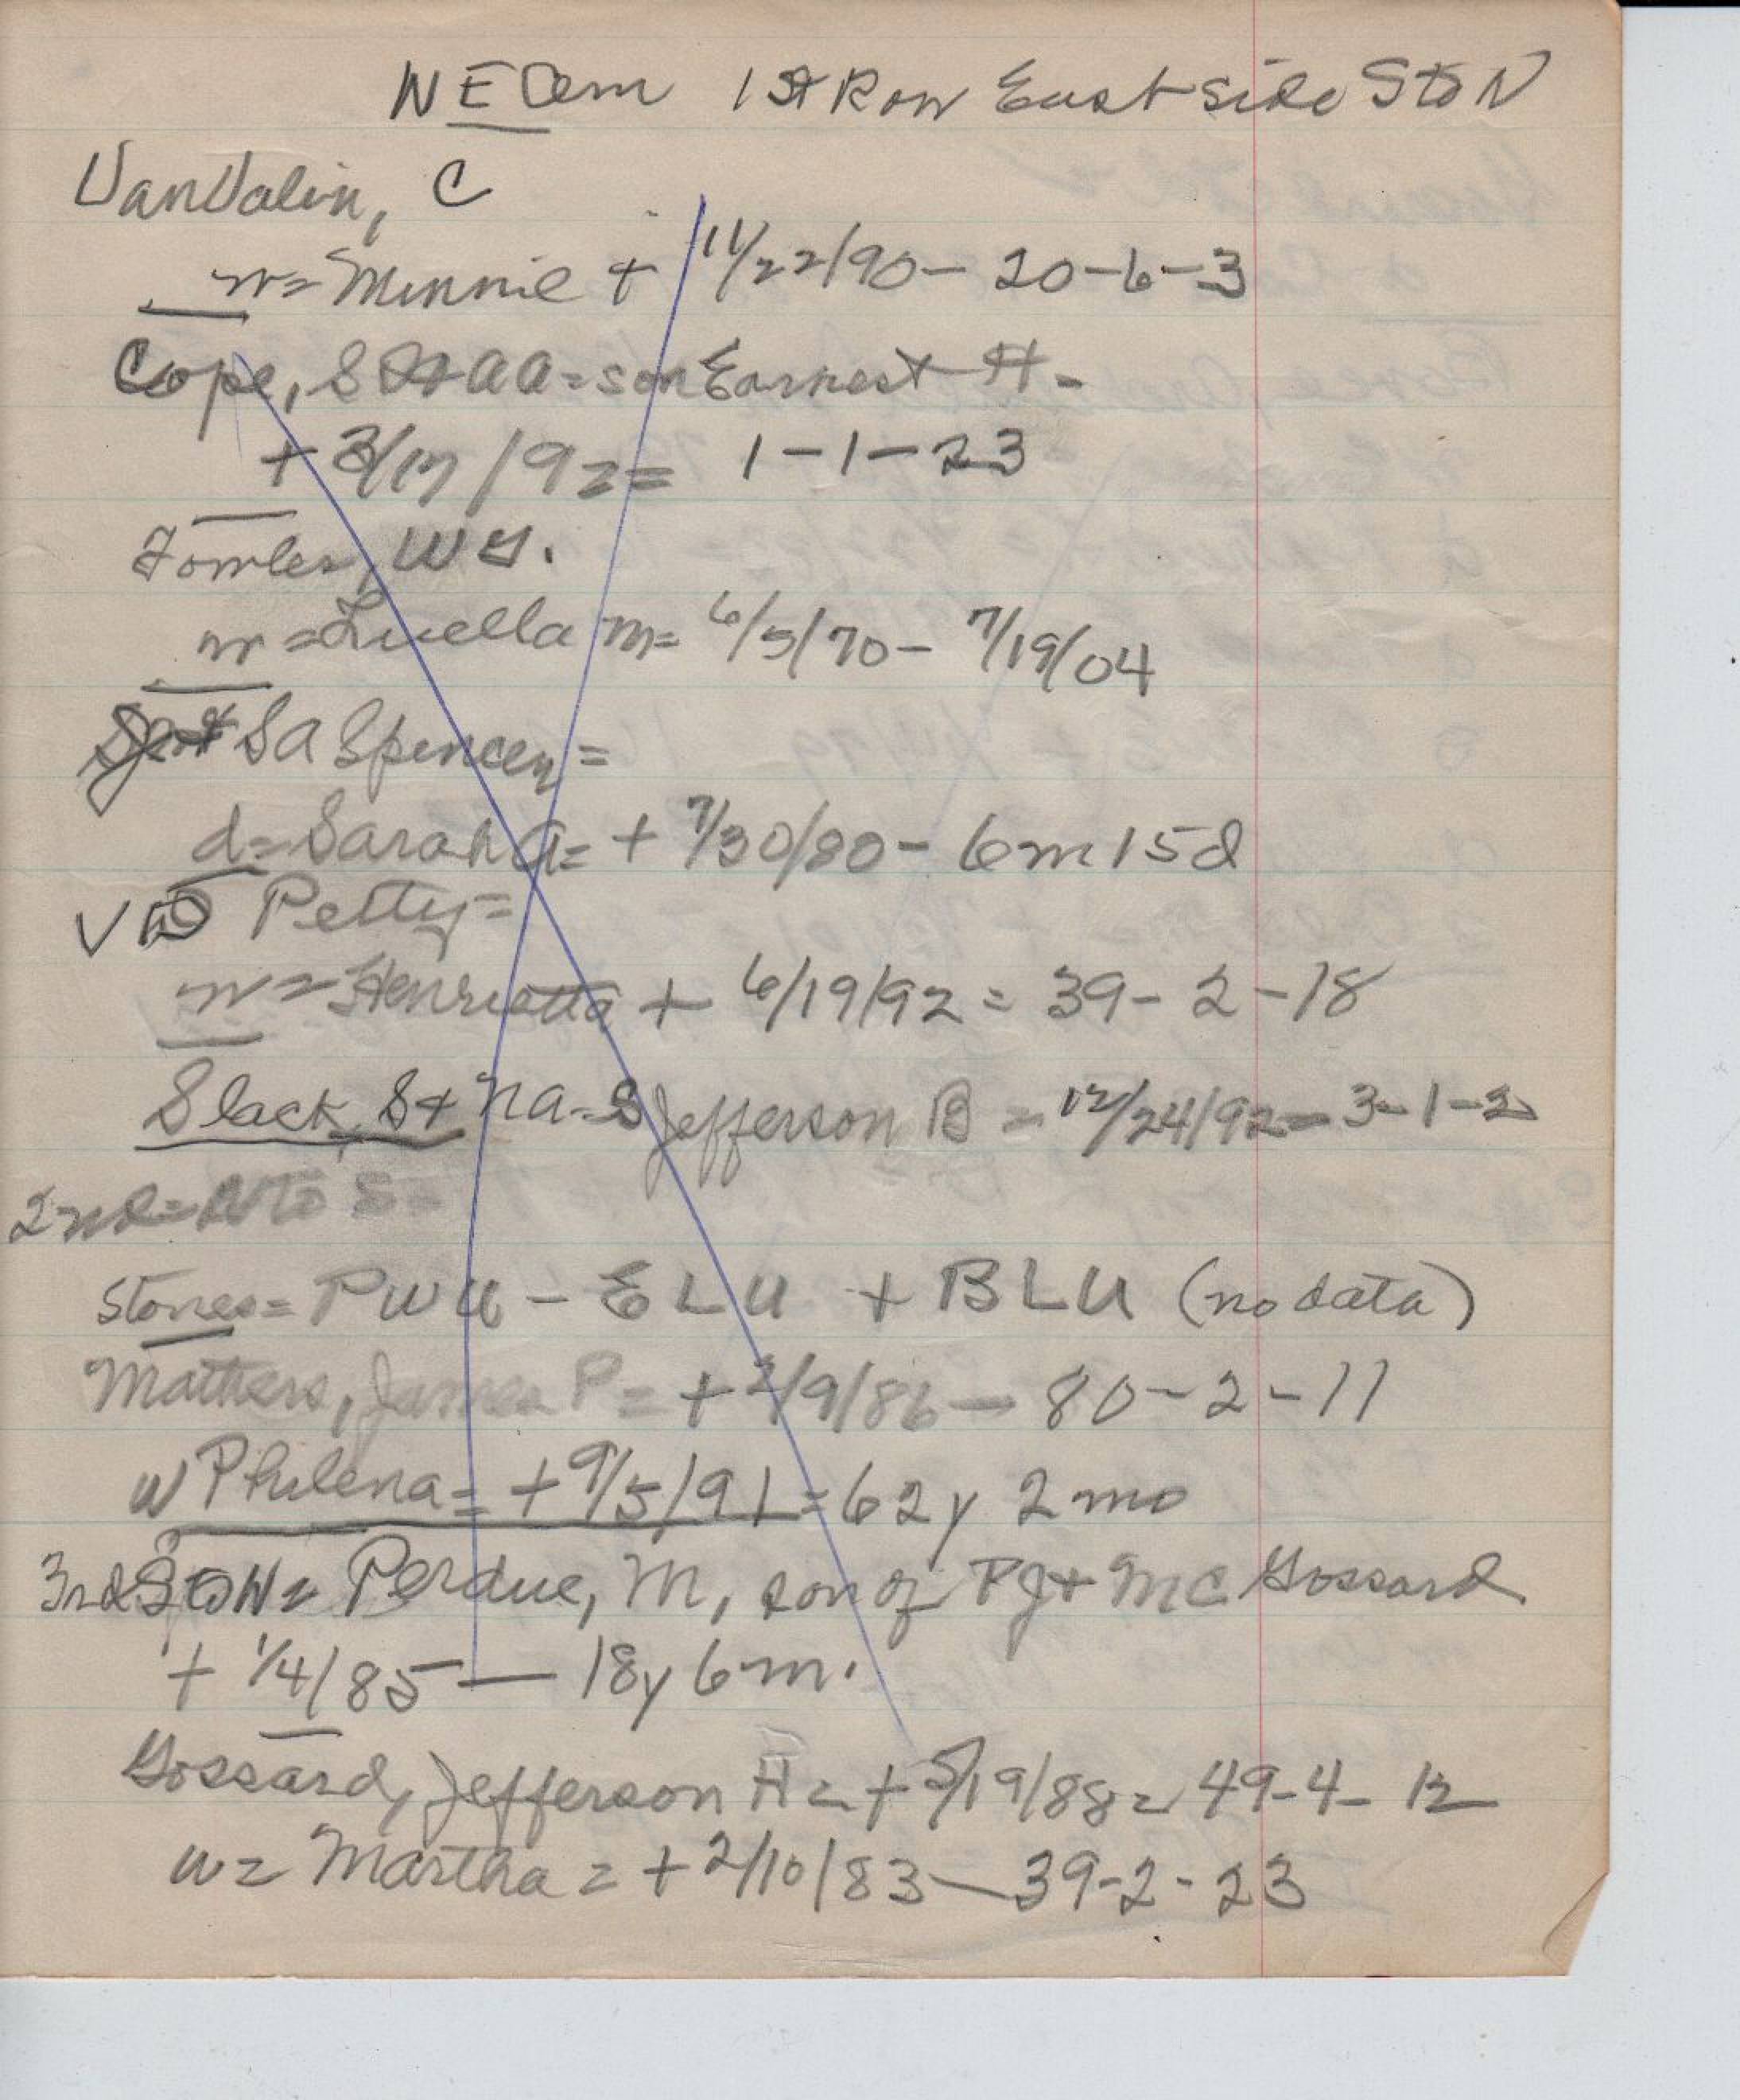 NE Cem 1st Row East side S to N
VanValin, C
w = Minnie + 11/22/90 – 20–6–3
Cope, S H + AA = son Earnest H –
+ 3/17/92 = 1–1–23
Fowler, W Y.
w = Luella M = 6/5/70 – 7/19/04
S A Spencer =
d = Sarah A = + 7/30/80 – 6m 15d
V D Petty =
w = Henrietta + 6/19/92 = 39–2–18
Slack, S + NA – S Jefferson B = 12/24/92 = 3–1–2
2nd = N to S =
Stones = PWU – ELU + BLU (no data)
Mathers, James P = + 2/9/86 – 80–2–11
w Philena = + 9/5/91 = 62y 2mo
3rd S to N = Perdue, M, son of PJ + MC Gossard
+ 1/4/85 — 18y 6m.
Gossard, Jefferson H = + 5/19/88 = 49–4–12
w = Martha = + 2/10/83 — 39–2–23